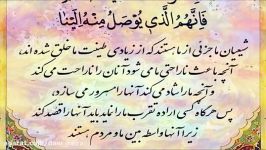 فَاِنَّهُمُ الَّذي يُوصَلُ مِنْهُ اِلَيْنا
شیعیان ما جزئی از ما هستند که از زیادی طینت ما خلق شده اند،
آنچه ما را ناراحت می کند
و آنچه ما را شاد می کند آنها را مسرور می سازد،
پس هرگاه کسی اراده تقرب ما را نماید باید آنها را قصد کند
زیرا آنها واسطه بین ما و مردم هستند